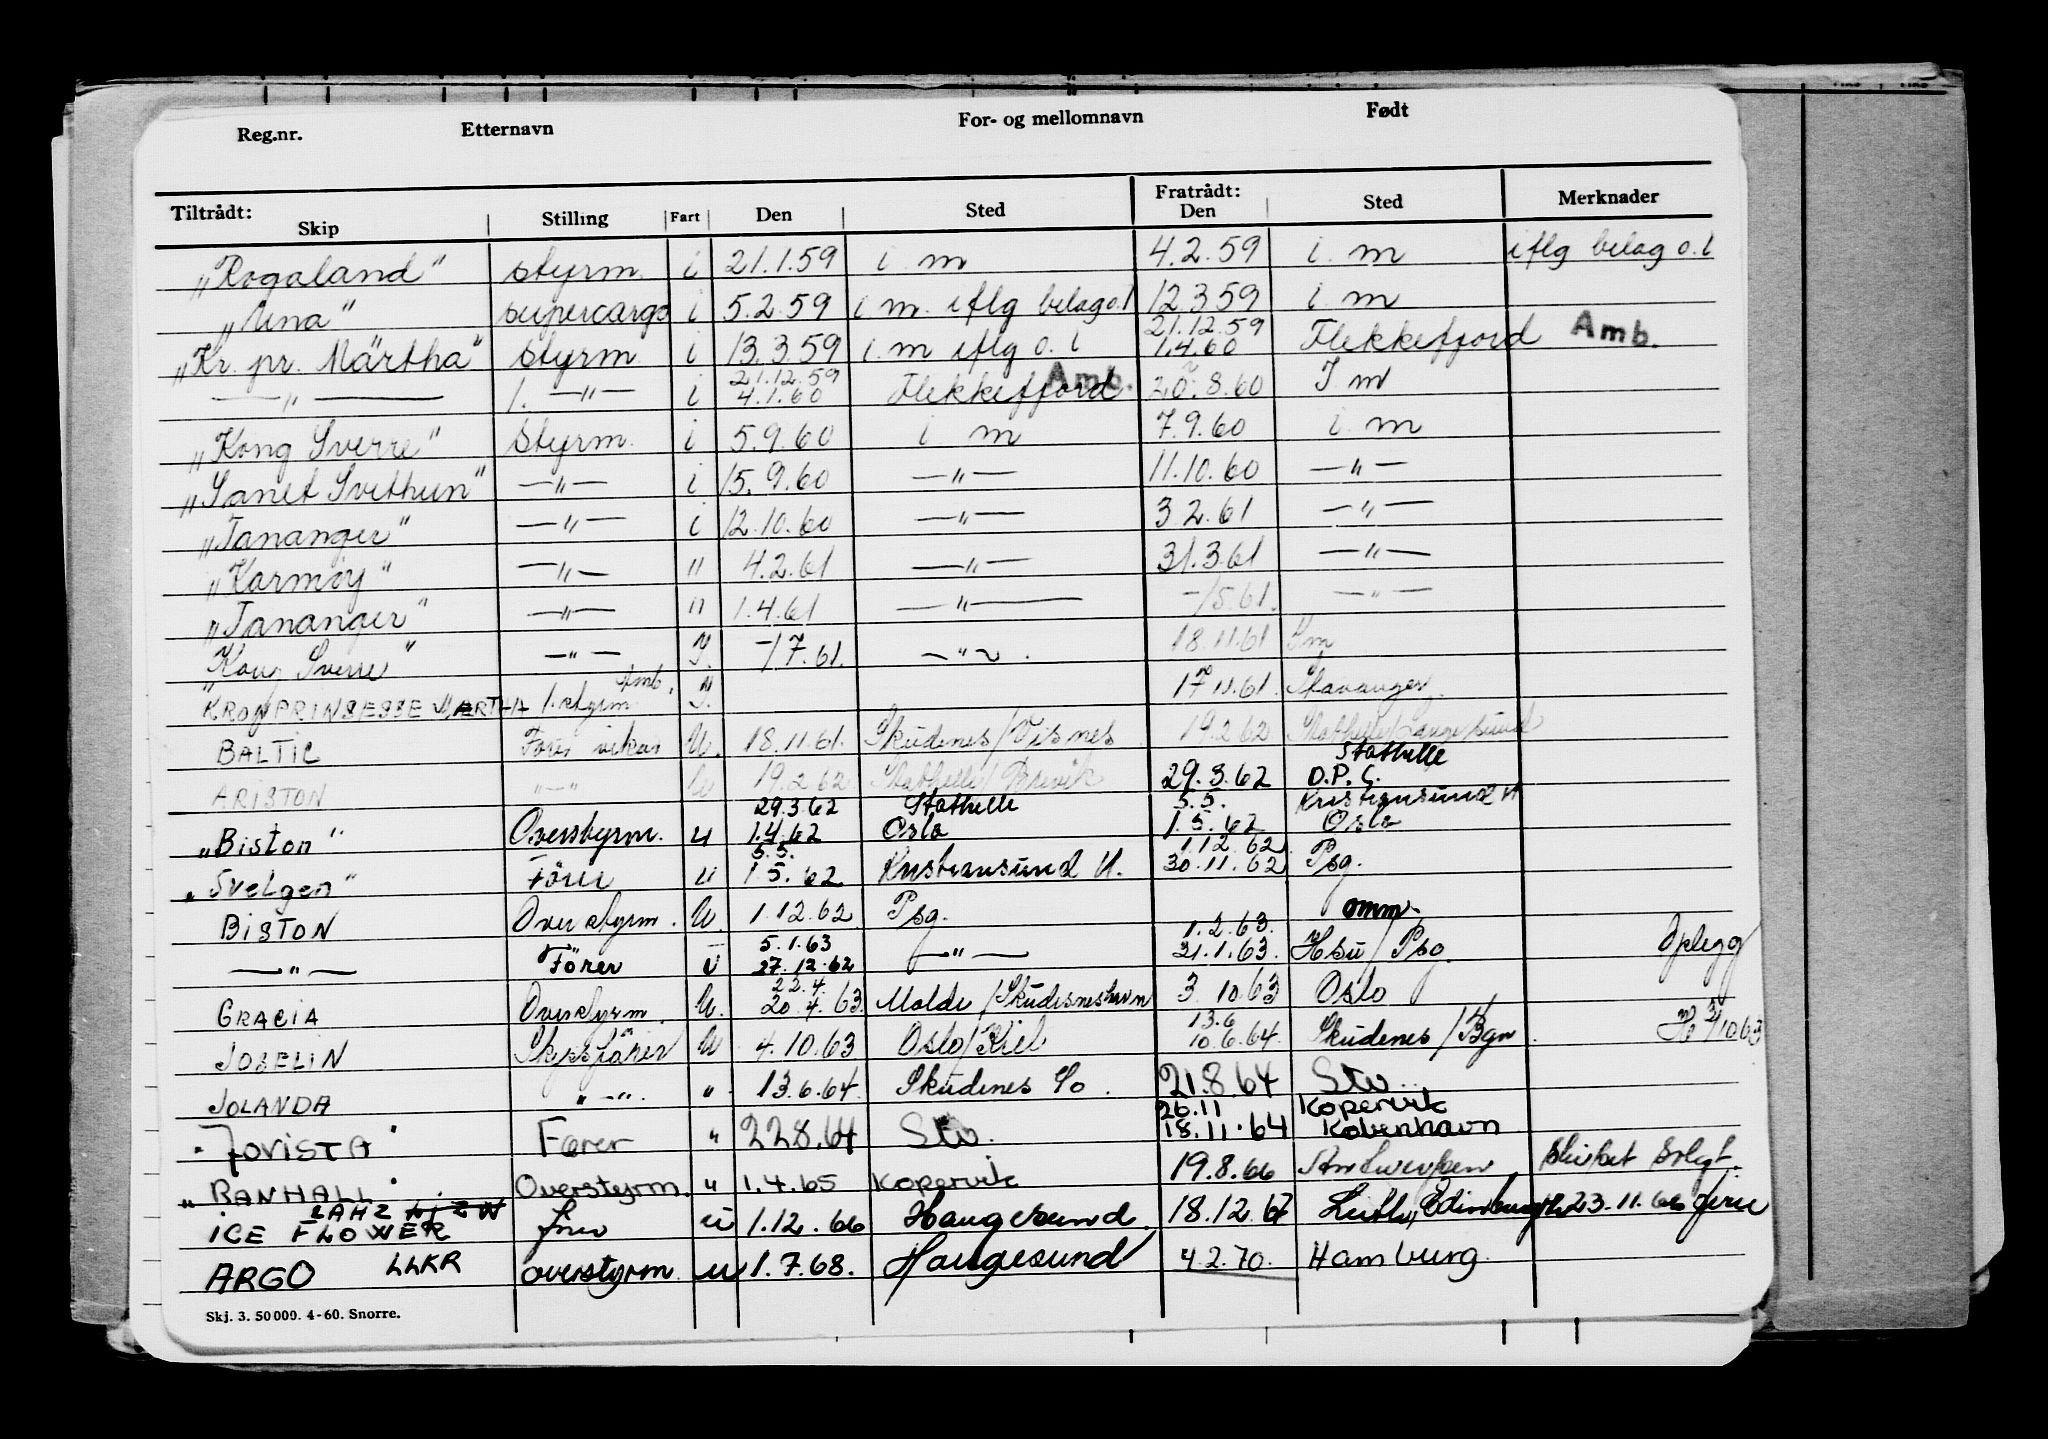 Reg.nr. Etternavn For- og mellomnavn Født
Tiltrådt: Skip Stilling Fart Den Sted Fratrådt: Den Sted Merknader
„Rogaland" styrm. i 21.1.59 i. m 4.2.59 i. m iflg belag o. l
„Una" supercargo i 5.2.59 i. m. iflg belag o.l 12.3.59 i. m
21.12.59
„Kr. pr. Märtha" styrm. i 13.3.59 i. m iflg o. l 1.4.60 Flekkefjord Amb.
21.12.59 Amb.
—„— 1. —„— i 4.1.60 Flekkefjord 20.8.60 I m
„Kong Sverre" styrm. i 5.9.60 i m 7.9.60 i. m
„Sanct Svithun" —„— i 15.9.60 —„— 11.10.60 —„—
„Tananger" —„— i 12.10.60 —„— 3 2.61 —„—
„Karmøy" —„— " 4.2.61 —„— 31.3.61 —„—
„Tananger" —„— " 1.4.61 —„— -/5.61. —„—
„Kong Sverre" —„— I. -/7.61. —„— 18.11.61 Im
KRONPRINSESSE MÆRTHA 1. styrm. Amb. I. 17.11.61. Stavanger.
BALTIC Fører vikar U. 18.11.61. Skudenes/Visnes 19.2.62 Stathelle/Langesund
Stathelle
ARISTON "—" U 19.2.62 Stathelle/Brevik 29.3.62 O.P.C.
29.3.62 Stathelle 5.5. Kristiansund N
„Biston" Overstyrm. u 1.4.62 Oslo 1.5.62 Oslo
5.5. 1.12.62
„Svelgen" Förer u 1.5.62 Kristiansund N. 30.11.62 Psg.
BISTON Overstyrm. U. 1.12.62 Psg. omm.
5.1.63 1.2.63.
—„— Förer U 27.12.62 —„— 31.1.63. Hsu/Psg. Oplegg
22.4.
GRACIA Overstyrm. U. 20.4.63. Molde/Skudesneshavn 3.10.63 Oslo
13.6
JOSELIN Skipsfører U 4.10.63 Oslo/Kiel 10.6.64. Skudenes/Bgn. H 3/10 63
JOLANDA "—". " 13.6.64. Skudenes So. 21.8.64 Stv.
26.11 Kopervik
"JOVISTA" Fører " 22.8.64 Stv. 18.11.64 København
„RANHALL" Overstyrm. " 1.4.65 Kopervik 19.8.66 Antwerpen skutet solgt.
LAHZ
ICE FLOWER fører u 1.12.66 Haugesund. 18.12.67 Leith, Edinburgh 23.11.66
ARGO LLKR overstyrm. u 1.7.68. Haugesund 4.2.70. Hamburg.
Skj. 3. 50 000. 4-60. Snorre.